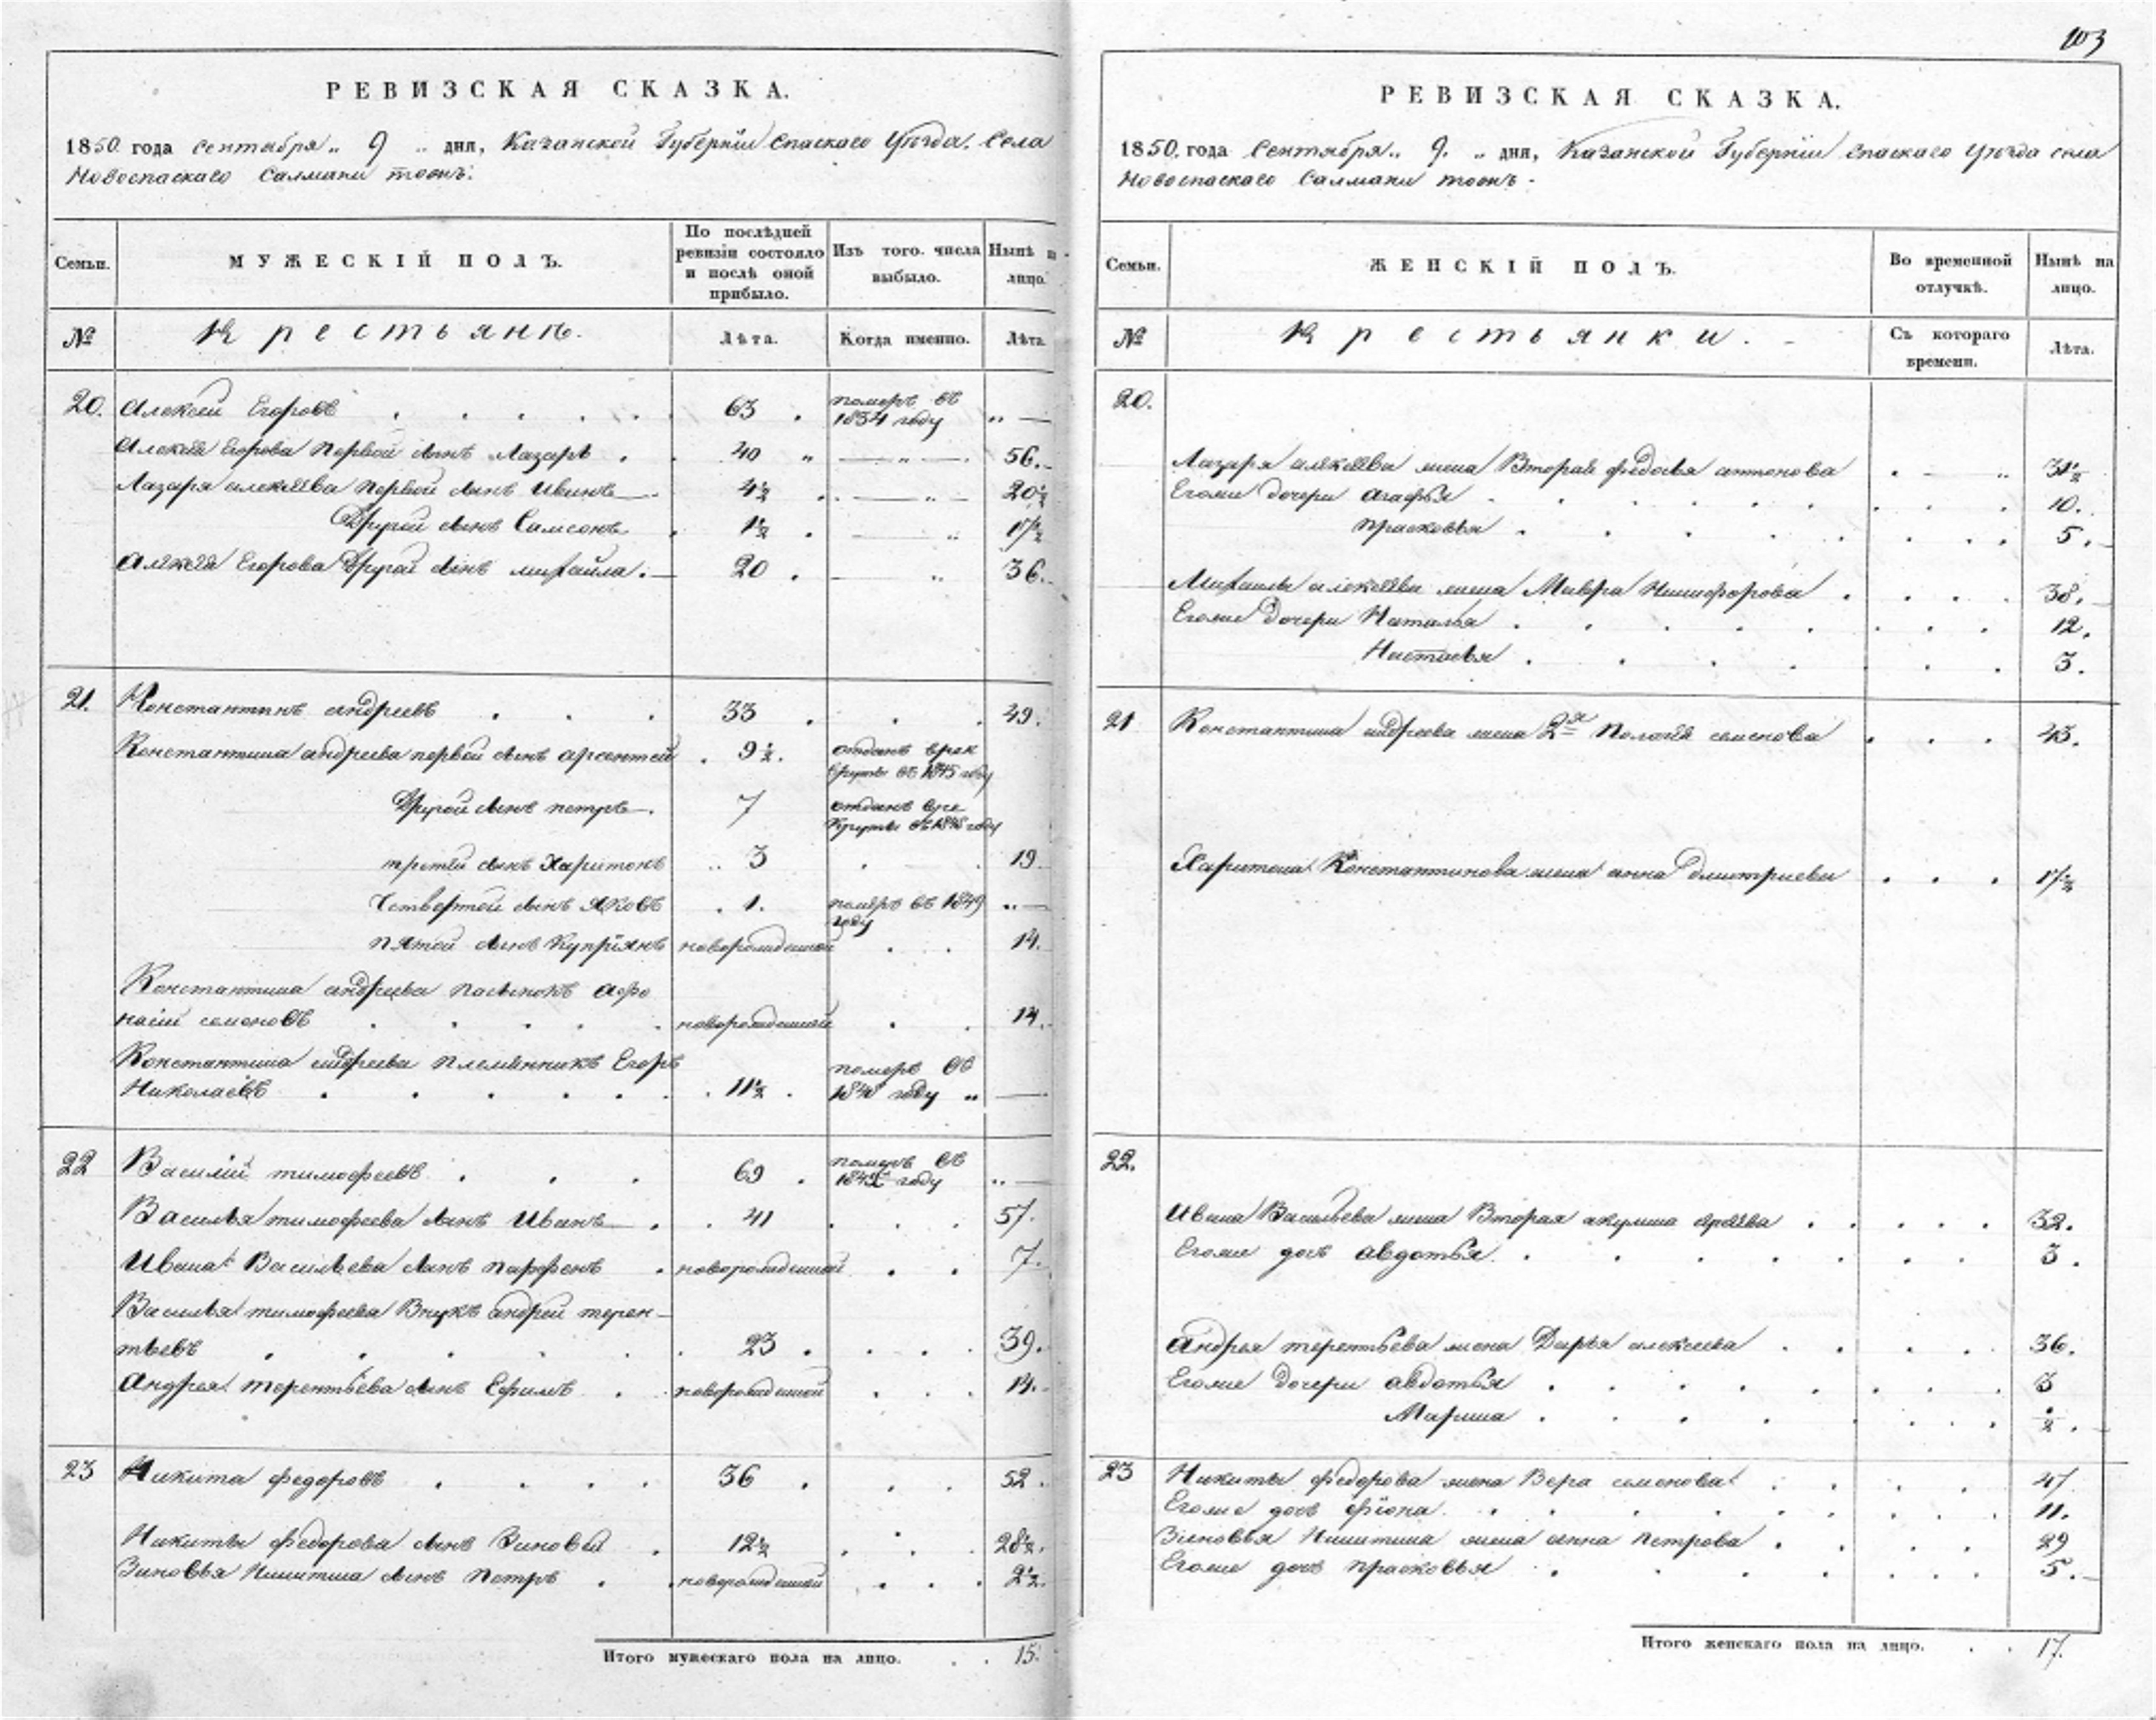 103
РЕВИЗСКАЯ СКАЗКА.
1850 года сентября „ 9 „ дня, Казанской Губерніи Спаскаго Уѣзда. Села
Новоспаскаго Салманы тожъ.
Семьи.
МУЖЕСКІЙ ПОЛЪ.
По послѣдней
ревизіи состояло
и послѣ оной
прибыло.
Изъ того числа
выбыло.
Нынѣ на
лицо.
№
Крестьянъ.
Лѣта.
Когда именно.
Лѣта.
20. Алексей Егоровъ 63 померъ въ
1834 году „ —
Алексѣя Егорова Первой сынъ Лазарь 40 „ — „ — 56.
Лазаря алексѣева Первой сынъ Иванъ 4½ „ — „ — 20½
Другой сынъ Самсонъ 1½ — „ 17½
Алѣксѣя Егорова Другой сынъ михайла 20 — „ 36.
21. Константинъ андреевъ 33 49.
Константина андреева первой сынъ арсентей 9½. отданъ врек
круты въ 1845 году
Другой сынъ петръ 7 отданъ вре
круты въ 1848 году
третей сынъ Харитонъ „ 3 19
Четвертой сынъ Яковъ 1. померъ въ 1849
году „ —
пятой сынъ Купріянъ новорожденной 14.
Константина андреева пасынокъ афо
насій семеновъ новорожденной 14.
Константина андреева племянникъ Егоръ
Николаевъ 11½ померъ во
184 году „ —
22 Василій тимофеевъ 69 померъ въ
184 году „ —
Василья тимофеева сынъ Иванъ 41 57.
Ивана Васильева сынъ парфенъ новорожденной 7.
Василья тимофеева Внукъ андрей терен-
тьевъ 23 39.
Андрея терентьева сынъ Ефимъ новорожденной 14.
23 Никита федоровъ 36 52.
Никиты федорова сынъ Зиновей 12½ 28½.
Зиновья Никитина сынъ Петръ новорожденной 2½.
Итого мужескаго пола на лицо. 15.
РЕВИЗСКАЯ СКАЗКА.
1850 года Сентября „ 9. „ дня, Казанской Губерніи Спаскаго Уѣзда села
Новоспаскаго Салманы тожъ.
Семьи.
ЖЕНСКІЙ ПОЛЪ.
Во временной
отлучкѣ.
Нынѣ на
лицо.
№
Крестьянки.
Съ котораго
времени.
Лѣта.
20.
Лазаря алексѣева жена Вторая федосья антонова „ 31½
Егоже дочери агафья 10.
прасковья 5.
Михаилы алексѣева жена Мавра Никифорова 38.
Егоже дочери Наталья 12.
Настасья 3.
21 Константина андреева жена 2я Пологѣя семенова 43.
Харитона Константинова жена анна дмитриева 17½
22.
Ивана Васильева жена Вторая акулина 32.
Егоже дочь авдотья 3.
андрея терентьева жена Дарья алексеева 36.
Егоже дочери авдотья 3
Марина ½.
23 Никиты федорова жена Вера семенова 47
Егоже дочь фіона 11.
Зиновья Никитина жена анна Петрова 29
Егоже дочь прасковья 5.
Итого женскаго пола на лицо. 17.